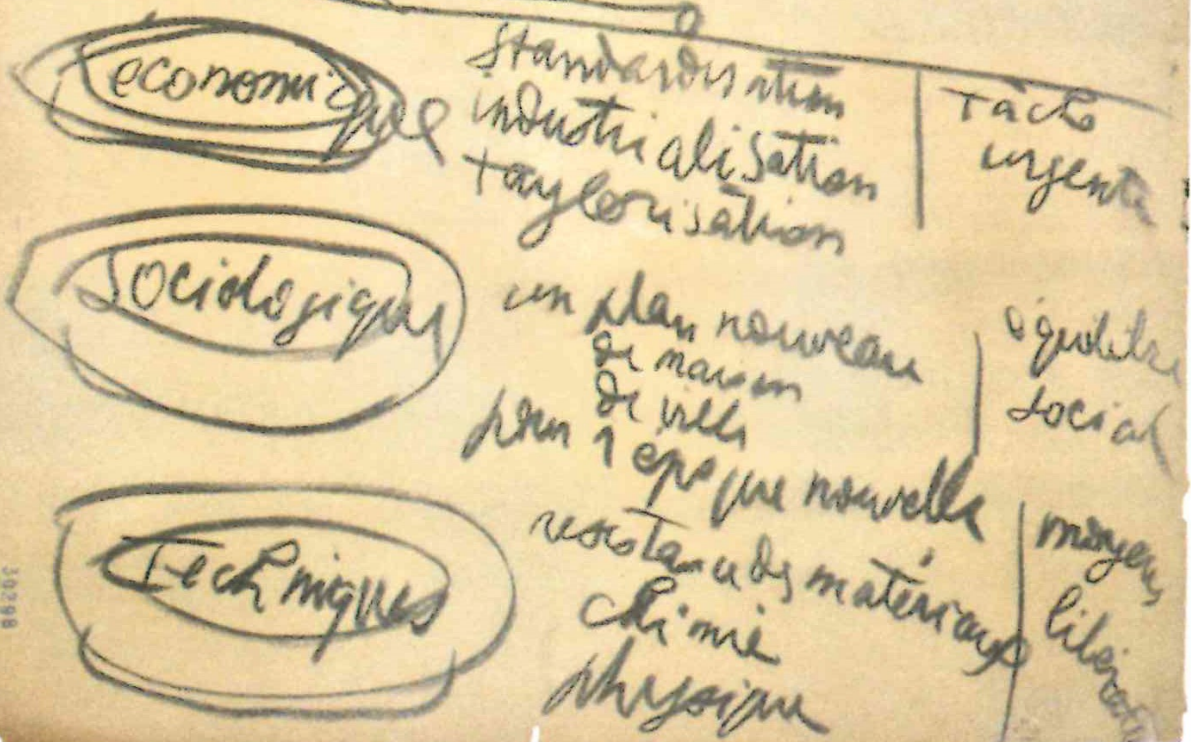 economique
Standardisation
industrialisation
taylorisation
Tâche
urgente
Sociologique
un plan nouveau
de maison
de ville
pour l'époque nouvelle
équilibre
social
Techniques
resistance des matériaux
chimie
physique
moyens
30298